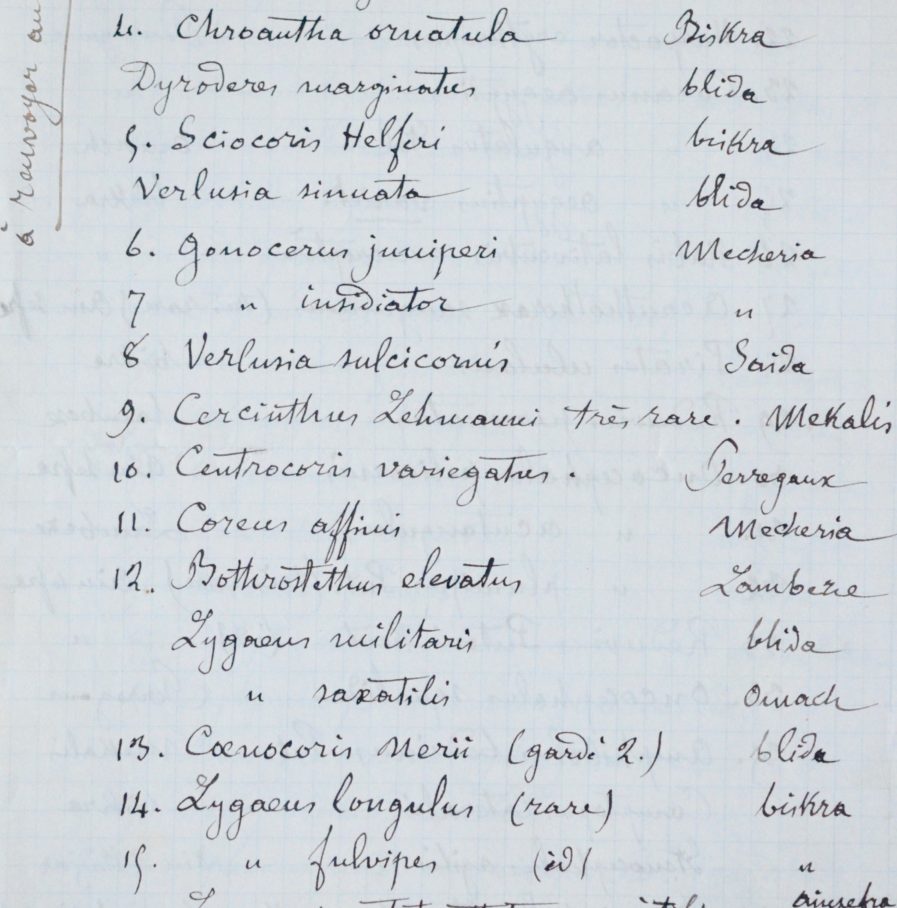 à renvoyer au
4. Chroantha ornatula Biskra
Dyroderes marginatus blida
5. Sciocoris Helferi biskra
Verlusia sinuata blida
6. Gonocerus juniperi Mecheria
7 " insidiator "
8 Verlusia sulcicornis Saida
9. Cercinthus Lehmanni très rare. Mekalis
10. Centrocoris variegatus. Perregaux
11. Coreus affinis Mecheria
12. Bothrostethus elevatus Lambeze
Lygaeus militaris blida
" saxatilis Omach
13. Cænocoris Nerii (gardé 2.) blida
14. Lygaeus longulus (rare) biskra
15. " fulvipes (id) "
ainsefra